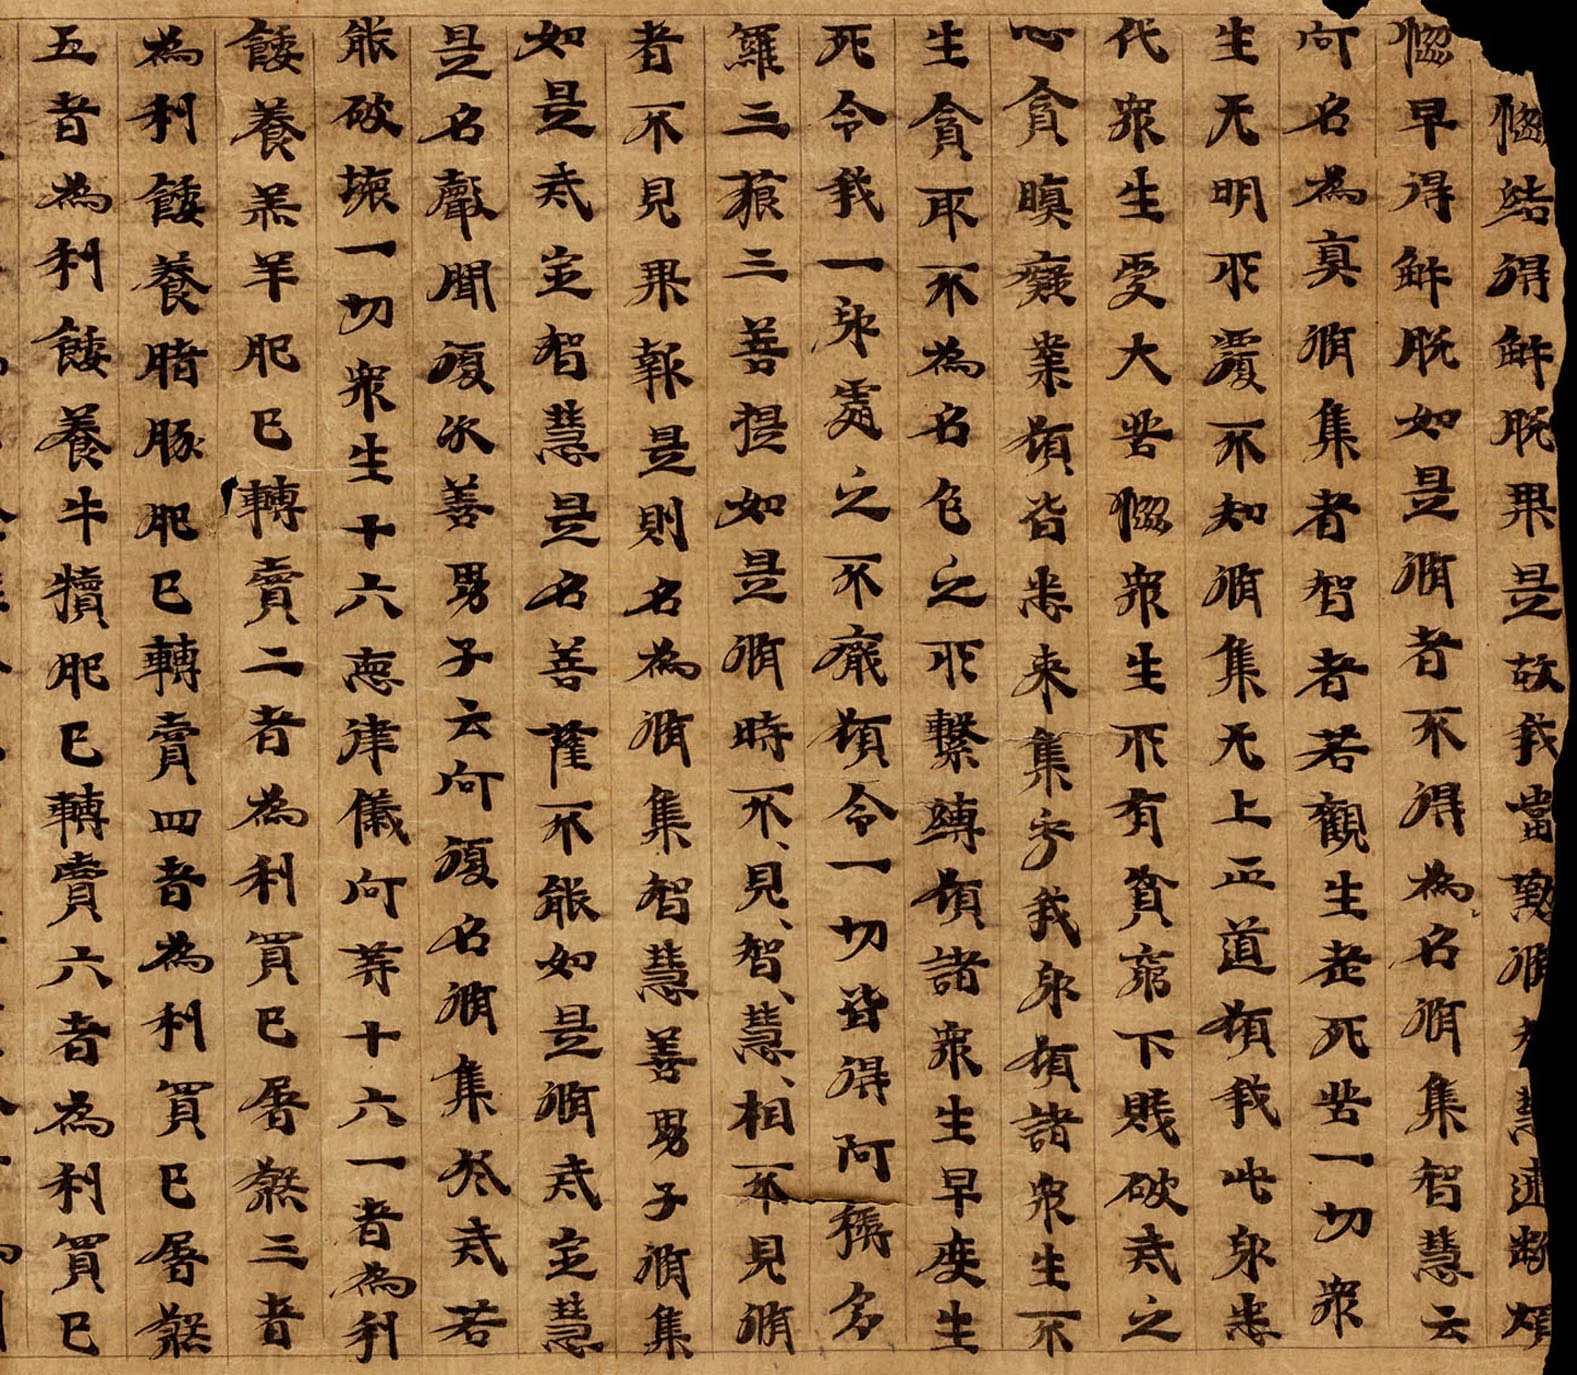 惱結得解脫果是故我當勤脩智慧速斷煩
惱早得解脫如是脩者不得為名脩集智慧云
何名為真脩集者智者若觀生老死苦一切眾
生无明所覆不知脩集无上正道願我此身悉
代眾生受大苦惱眾生所有貧窮下賤破戒之
心貪瞋癡業願皆悉来集于我身願諸眾生不
生貪取不為名色之所繫縛願諸眾生早度生
死令我一身處之不厭願令一切皆得阿耨多
羅三藐三菩提如是脩時不、見、智、慧、相不見脩
者不見果報是則名為脩集智慧善男子脩集
如是戒定智慧是名菩薩不能如是脩戒定慧
是名聲聞復次善男子云何復名脩集於戒若
能破壞一切眾生十六惡律儀何等十六一者為利
餧養羔羊肥已轉賣二者為利買已屠煞三者
為利餧養猪豚肥已轉賣四者為利買已屠煞
五者為利餧養牛犢肥已轉賣六者為利買已